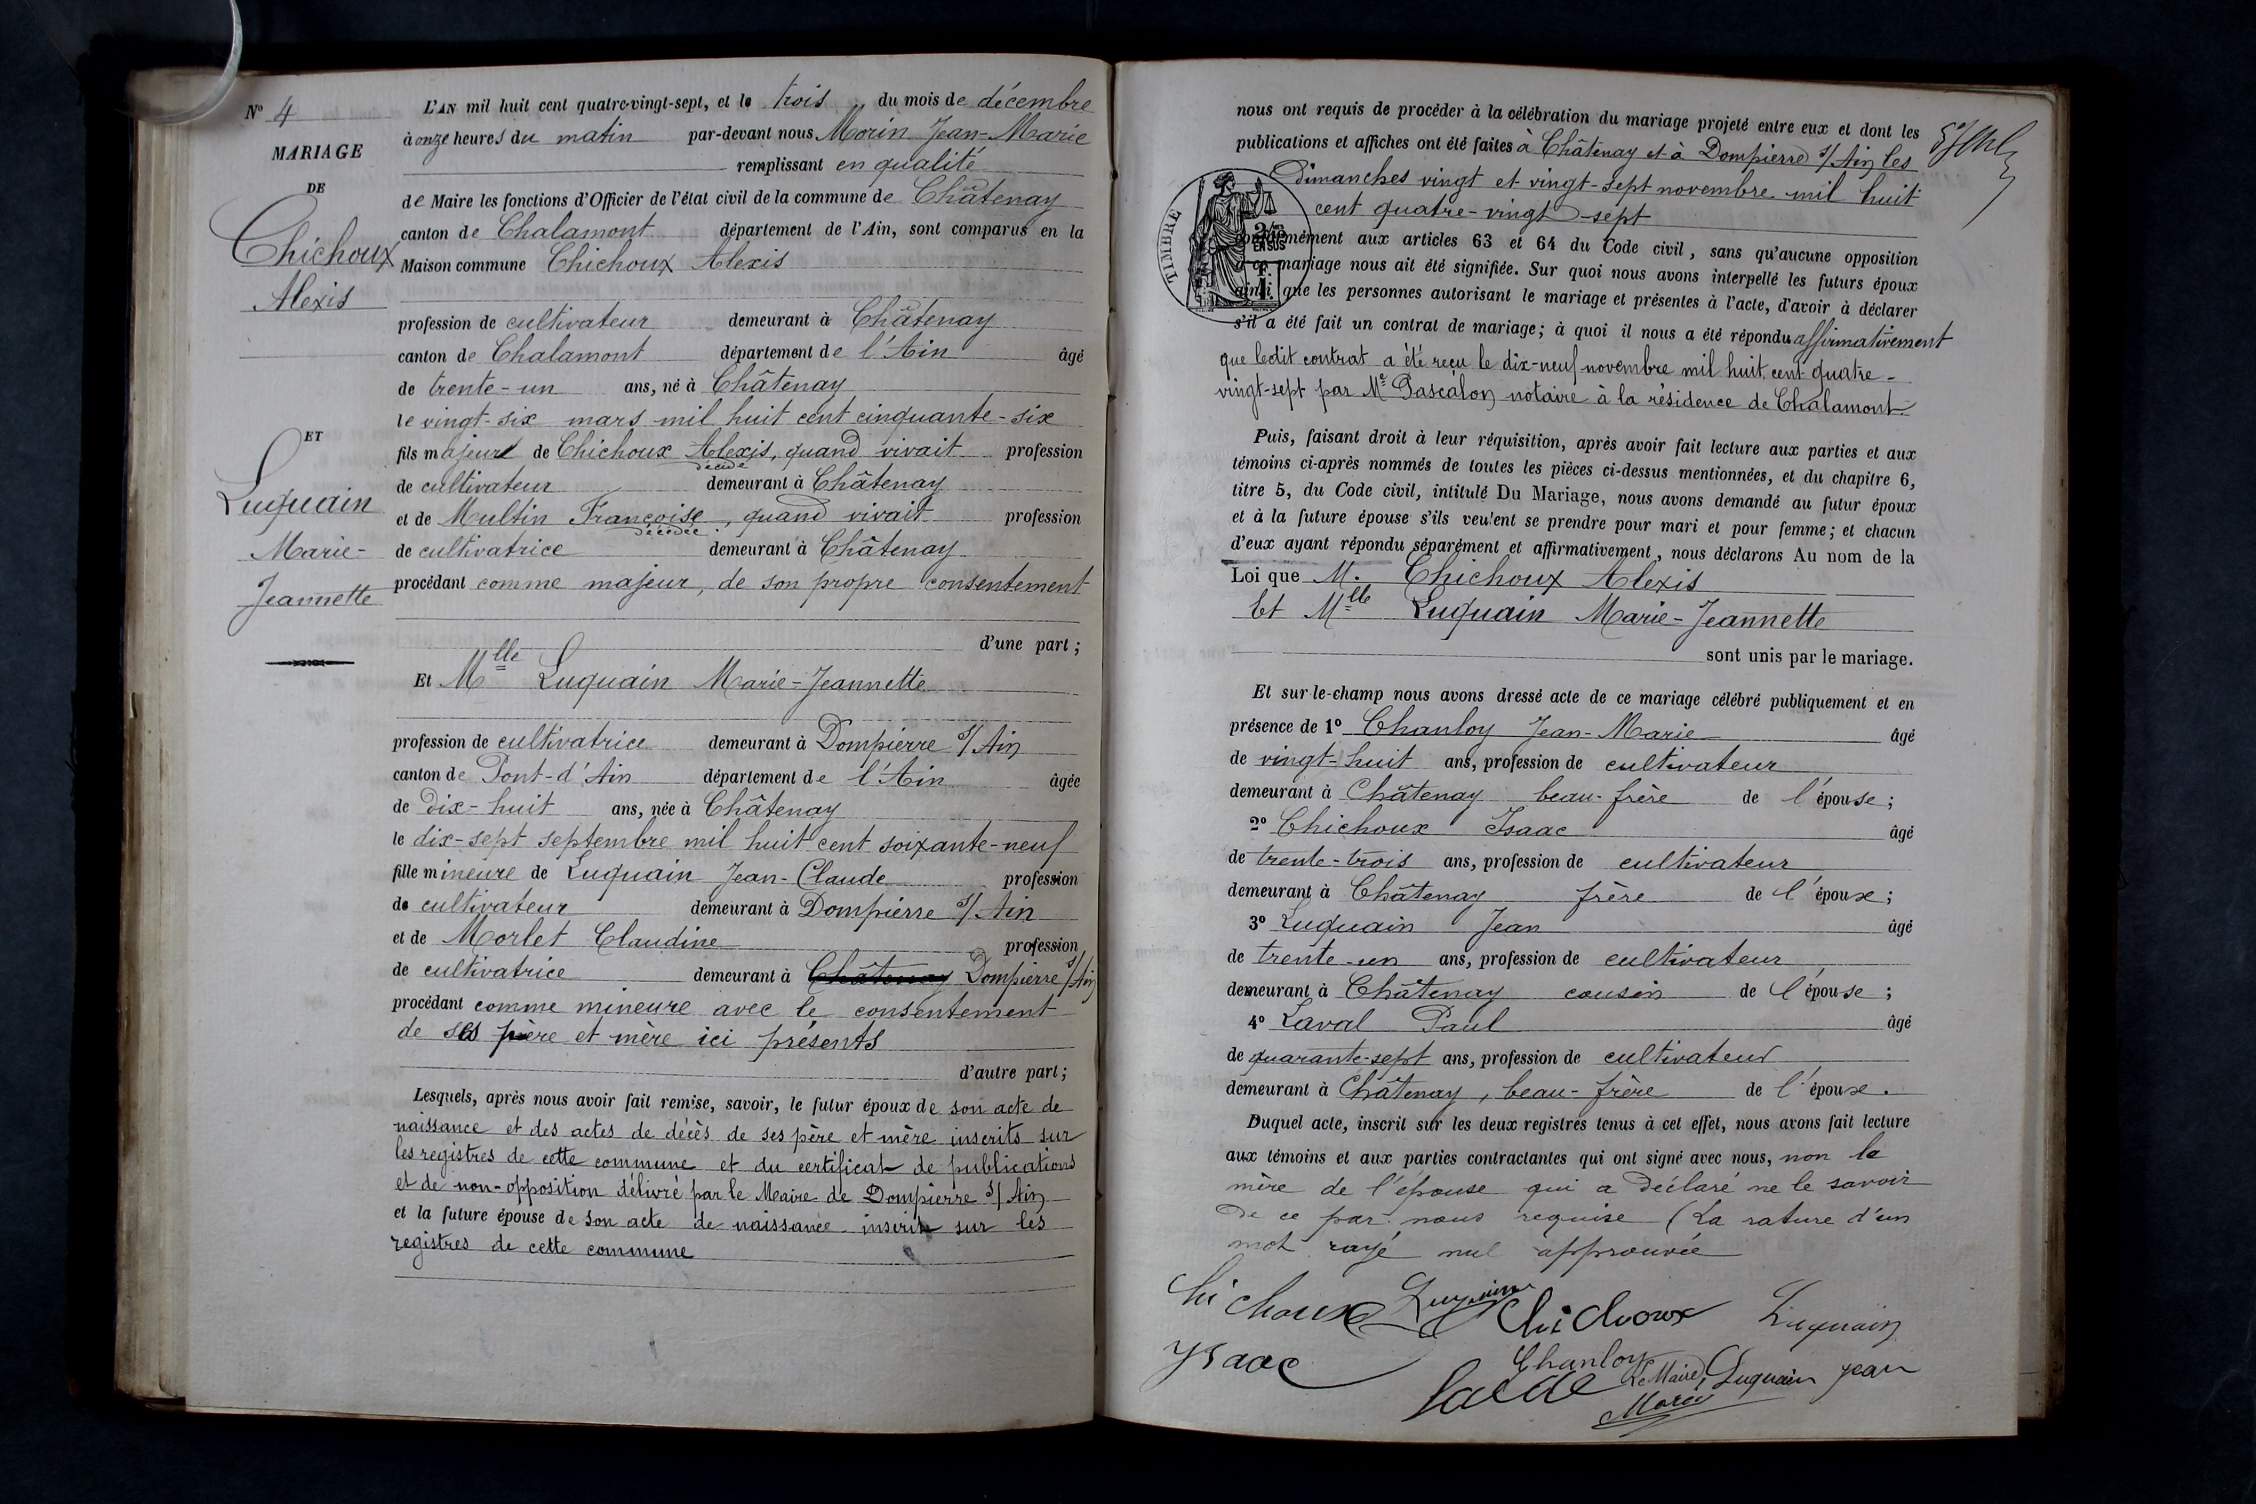 Nº 4
MARIAGE
DE
Chichoux
Alexis
ET
Luquain
Marie-
Jeannette
L'AN mil huit cent quatre-vingt-sept, et le trois du mois de décembre
à onze heures du matin par-devant nous Morin Jean-Marie
remplissant en qualité
de Maire les fonctions d'Officier de l'état civil de la commune de Châtenay
canton de Chalamont département de l'Ain, sont comparus en la
Maison commune Chichoux Alexis
profession de cultivateur demeurant à Châtenay
canton de Chalamont département de l'Ain âgé
de trente-un ans, né à Châtenay
le vingt-six mars mil huit cent cinquante-six
fils majeur de Chichoux Alexis, quand vivait profession
décédé
de cultivateur demeurant à Châtenay
et de Multin Françoise, quand vivait profession
décédée
de cultivatrice demeurant à Châtenay
procédant comme majeur, de son propre consentement
d'une part;
Et Mlle Luquain Marie-Jeannette
profession de cultivatrice demeurant à Dompierre s/ Ain
canton de Pont-d'Ain département de l'Ain âgée
de dix-huit ans, née à Châtenay
le dix-sept septembre mil huit cent soixante-neuf
fille mineure de Luquain Jean-Claude profession
de cultivateur demeurant à Dompierre s/ Ain
et de Morlet Claudine profession
de cultivatrice demeurant à Châtenay Dompierre s/ Ain
procédant comme mineure avec le consentement
de ses père et mère ici présents
d'autre part;
Lesquels, après nous avoir fait remise, savoir, le futur époux de son acte de
naissance et des actes de décès de ses père et mère inscrits sur
les registres de cette commune et du certificat de publications
et de non-opposition délivré par le Maire de Dompierre s/ Ain
et la future épouse de son acte de naissance inscrit sur les
registres de cette commune
nous ont requis de procéder à la célébration du mariage projeté entre eux et dont les
publications et affiches ont été faites à Châtenay et à Dompierre s/ Ain les
Dimanches vingt et vingt-sept novembre mil huit
cent quatre-vingt-sept
TIMBRE
2/10
EN SUS
conformément aux articles 63 et 64 du Code civil, sans qu'aucune opposition
à ce mariage nous ait été signifiée. Sur quoi nous avons interpellé les futurs époux
ainsi que les personnes autorisant le mariage et présentes à l'acte, d'avoir à déclarer
s'il a été fait un contrat de mariage; à quoi il nous a été répondu affirmativement
que ledit contrat a été reçu le dix-neuf novembre mil huit cent quatre-
vingt-sept par Me Pascalon notaire à la résidence de Chalamont
Puis, faisant droit à leur réquisition, après avoir fait lecture aux parties et aux
témoins ci-après nommés de toutes les pièces ci-dessus mentionnées, et du chapitre 6,
titre 5, du Code civil, intitulé Du Mariage, nous avons demandé au futur époux
et à la future épouse s'ils veulent se prendre pour mari et pour femme; et chacun
d'eux ayant répondu séparément et affirmativement, nous déclarons Au nom de la
Loi que M. Chichoux Alexis
Et Mlle Luquain Marie-Jeannette
sont unis par le mariage.
Et sur-le-champ nous avons dressé acte de ce mariage célébré publiquement et en
présence de 1º Chanloy Jean-Marie âgé
de vingt-huit ans, profession de cultivateur
demeurant à Châtenay beau-frère de l'épouse;
2º Chichoux Isaac âgé
de trente-trois ans, profession de cultivateur
demeurant à Châtenay frère de l'époux;
3º Luquain Jean âgé
de trente-un ans, profession de cultivateur
demeurant à Châtenay cousin de l'épouse;
4º Laval Paul âgé
de quarante-sept ans, profession de cultivateur
demeurant à Châtenay, beau-frère de l'époux.
Duquel acte, inscrit sur les deux registres tenus à cet effet, nous avons fait lecture
aux témoins et aux parties contractantes qui ont signé avec nous, non la
mère de l'épouse qui a déclaré ne le savoir
de ce par nous requise (La rature d'un
mot rayé nul approuvée
Chichoux Luquain Chichoux Luquain
Ysaac
Chanloy
Le Maire, Luquain jean
Morin